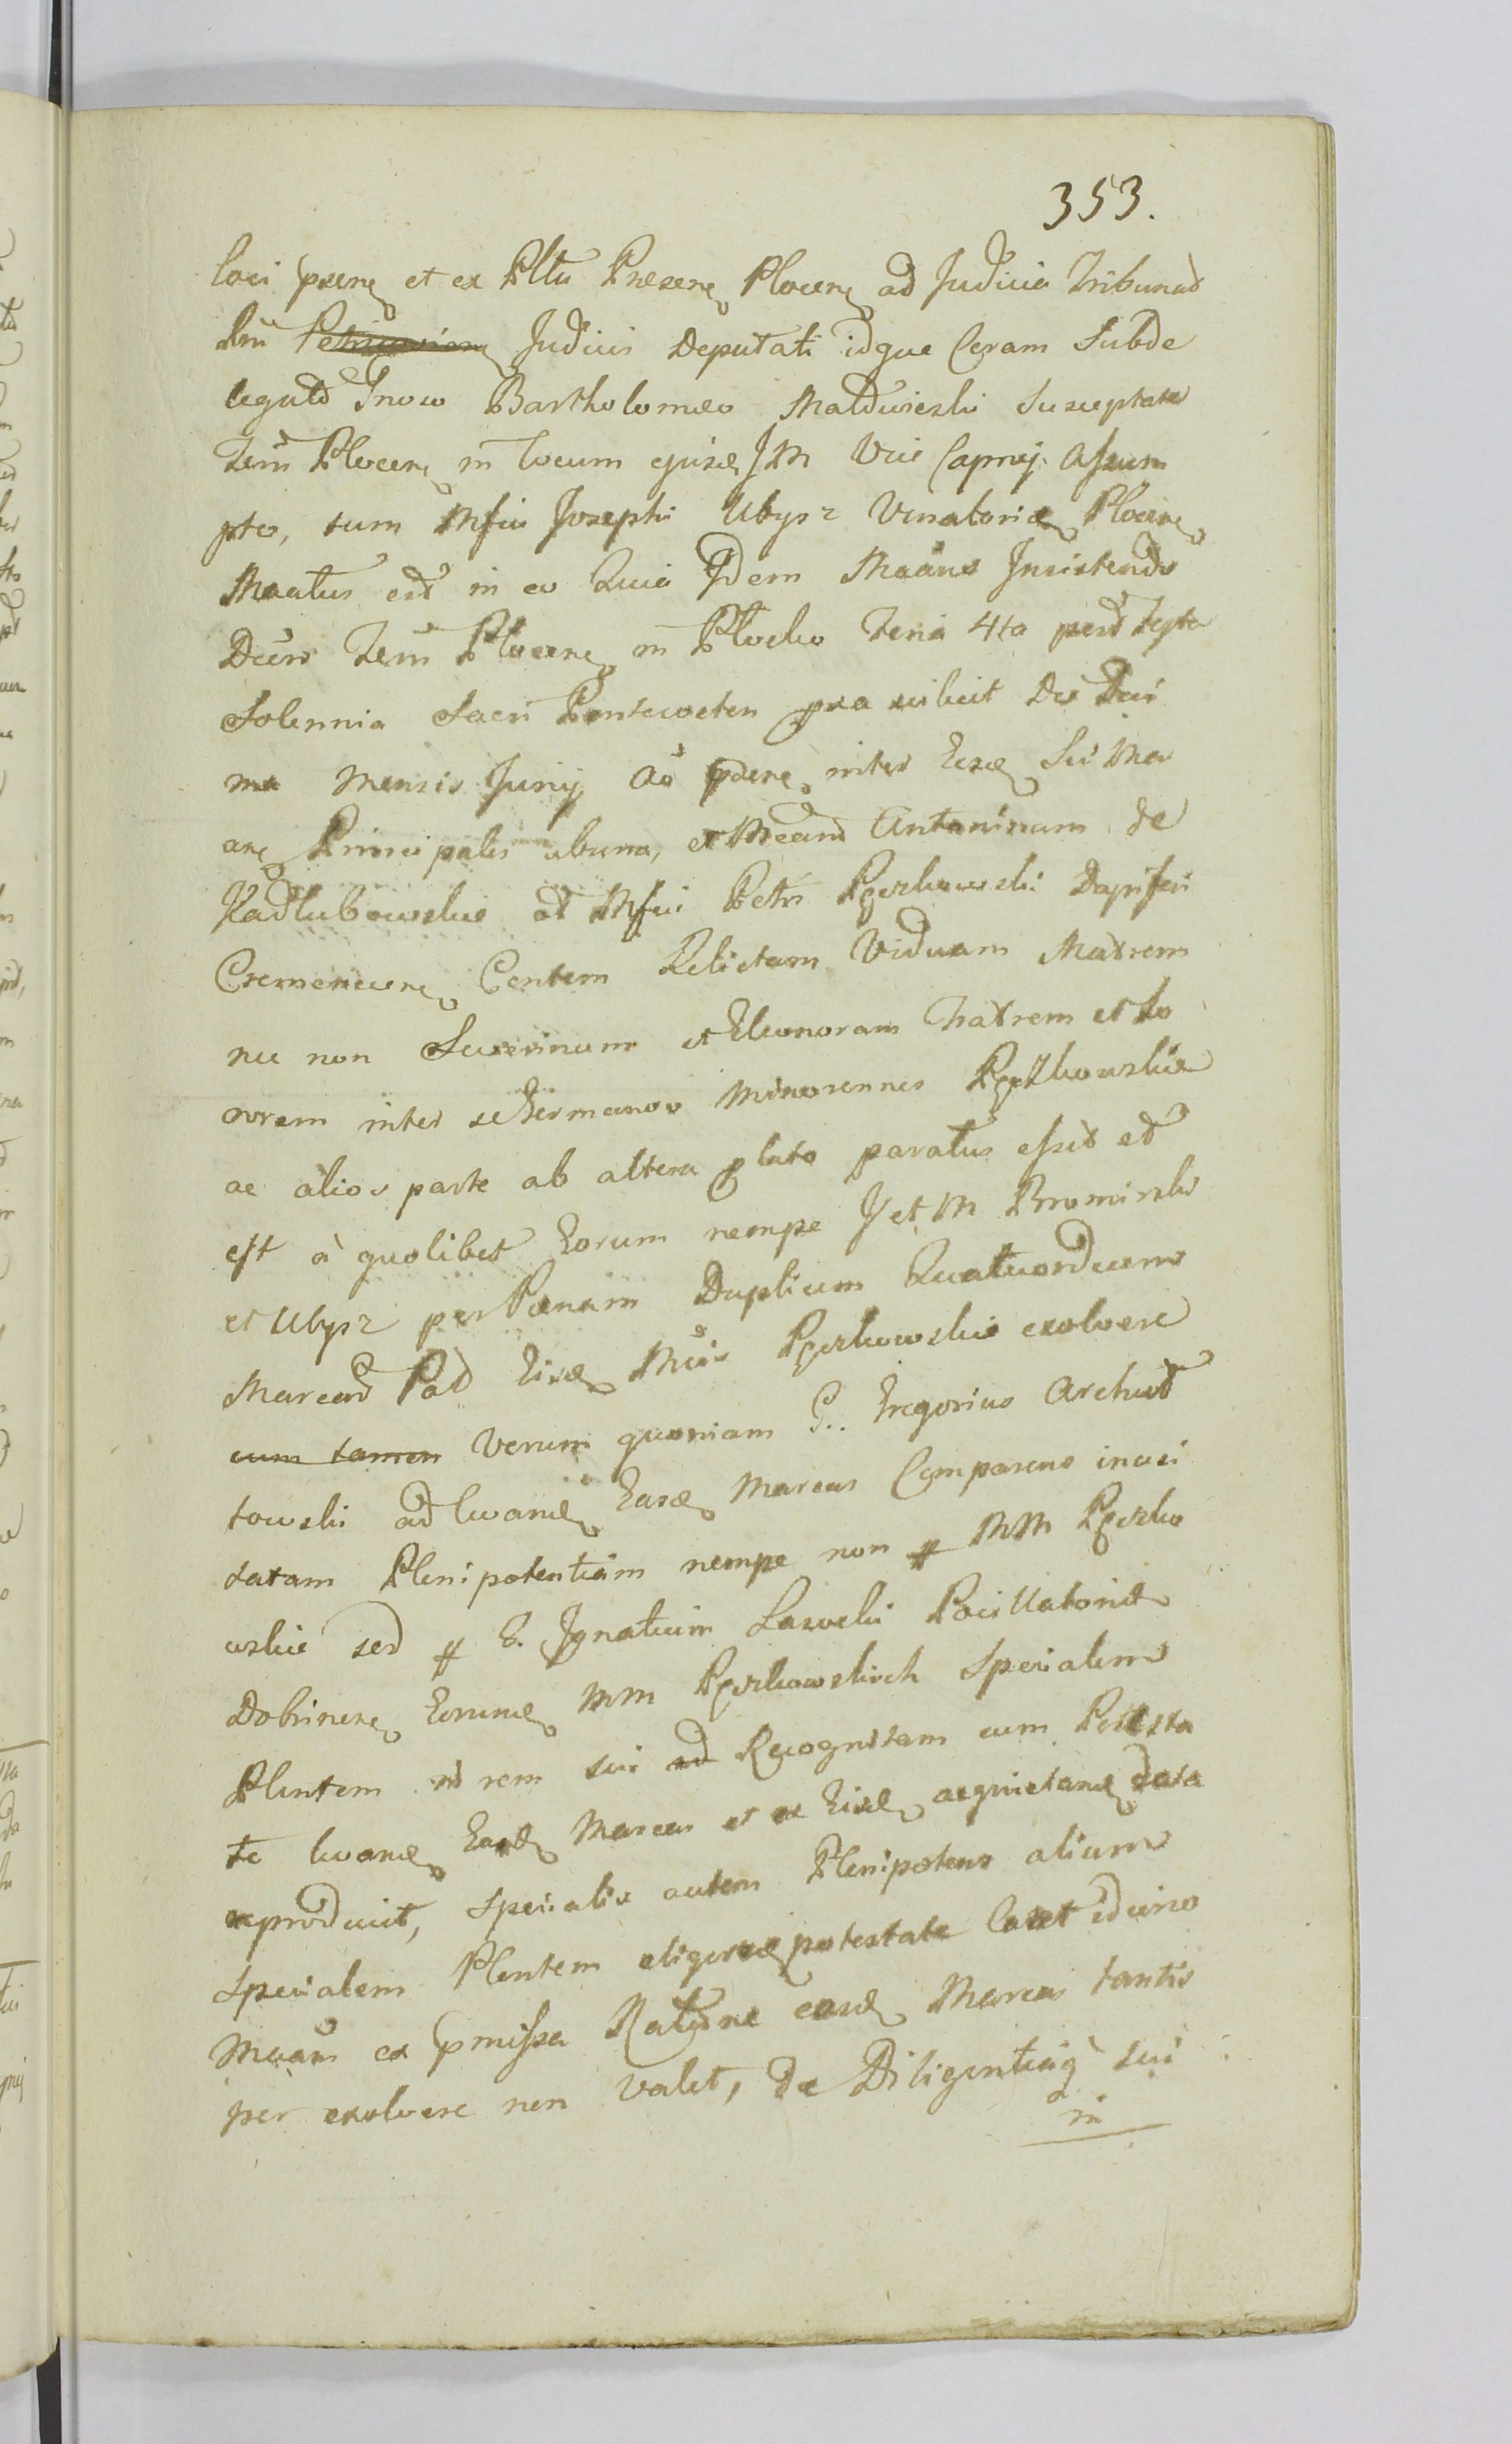 353.
loci psens et ex Pltu Presens Plocens ad Judicia Tribunal
lni Petricoviens Judicii Deputati idque Coram Subde
legato Gnoso Bartholomeo Maldwieski Susceptate
Terrũ Plocens in locum ejusd JM Vice Capnej Assum
pto, tum Mfici Josephi Ubysz Venatoris Plocens
Maatus est in eo Quia Idem Maans Insistendo
Dcũ Terrũ Plocens in Plocko Feria 4ta post Festa
Solennia Sacri Pentecosten pta scilicet Die Deci
ma Mensis Junij Aõ pdens inter Eesd Sui Ma
ans Principales ab una, et Mcam Antoninam de
Kadlubowskie ol Mfici Petri Pgerkowski Dapiferi
Cremenecens Contem Relictam Viduam Matrem
nec non Severinum et Eleonoram Fratrem et So
rorem inter se Germanos Minorennes Pgerkowskie
ac alios parte ab altera plato paratus essit et
est à quolibet Eorum nempe J et M Bromirski
et Ubysz per Pœnam Duplicem Quatuordecim
Marcas Pol Eisd Mcis Pgerkowskie exolvere
cum tamen Verum quoniam G. Gregorius Archut
towski ad levand Easd Marcas Comparens inusi
tatam Plenipotentiam nempe non p MM Pgerko
wskie sed p G. Ignatium Lasocki Pocillatorid
Dobrinens Eorumd MM Pgerkowskich Specialem
Plentem in rem sui ad Recognitam cum Potesta
te levand Easd Marcas et ex Eisd acquietand data
reproduxit, Specialis autem Plenipotens alium
Specialem Plentem eligendi potestate Caret idcirco
Maans ex pmissa Ratione easd Marcas tantis
per exolvere non valet, de Diligentiaq sui
in